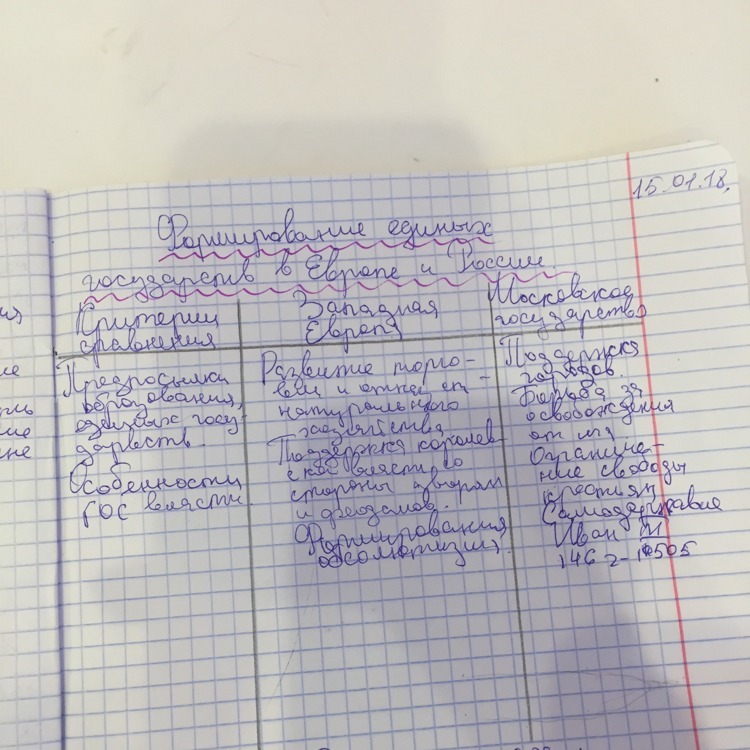 15.01.18.
Формирование единых
государств в Европе и России
Критерии
сравнения
Западная
Европа
Московское
государство
Предпосылки
образования
единых госу-
дарств.
Особенности
гос власти.
Развитие торго-
вли и от
натурального
хозяйства
Поддержка королев-
ской власти со
стороны
и феодалов.
Формирования
абсолютизми
Поддержка
городов.
Борьба за
освобождения
от ига
Ограниче-
ние свободы
крестьян
Самодержавие
Иван III
1462-1505